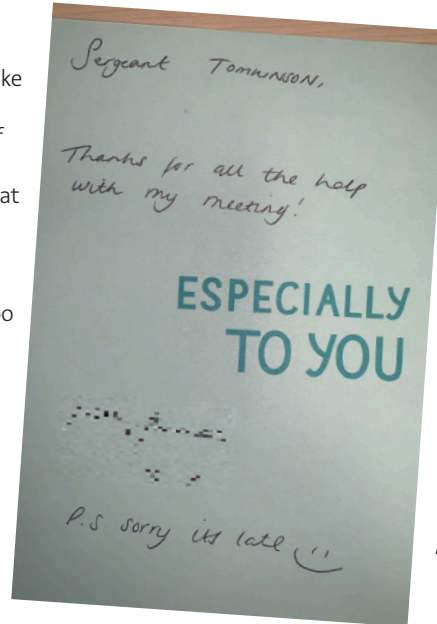 ke
at
Sergeant Tomkinson,
Thanks for all the help
with my meeting!
ESPECIALLY
TO YOU
P.S sorry its late